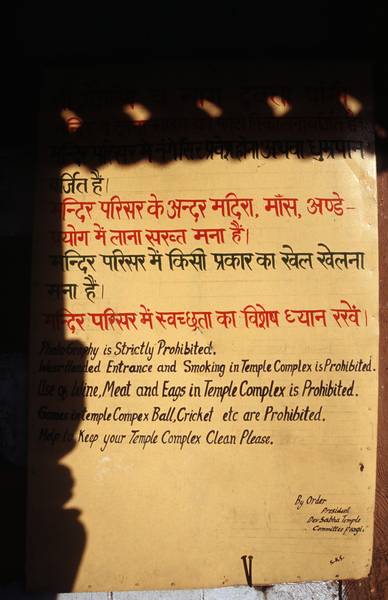 मन्दिर परिसर में नंगे सिर प्रवेश होना अथवा धुम्रपान
वर्जित है।
मन्दिर परिसर के अन्दर मदिरा, माँस, अण्डे-
प्रयोग में लाना सख्त मना हैं।
मन्दिर परिसर में किसी प्रकार का खेल खेलना
मना है।
मन्दिर परिसर में स्वच्छता का विशेष ध्यान रखें।
Photography is Strictly Prohibited.
Headed Entrance and Smoking in Temple Complex is Prohibited.
Use of Wine, Meat and Eags in Temple Complex is Prohibited.
Games in temple Compex Ball, Cricket etc are Prohibited.
Help to Keep your Temple Complex Clean Please.
By Order
President
Dev Sabha Temple
Committee